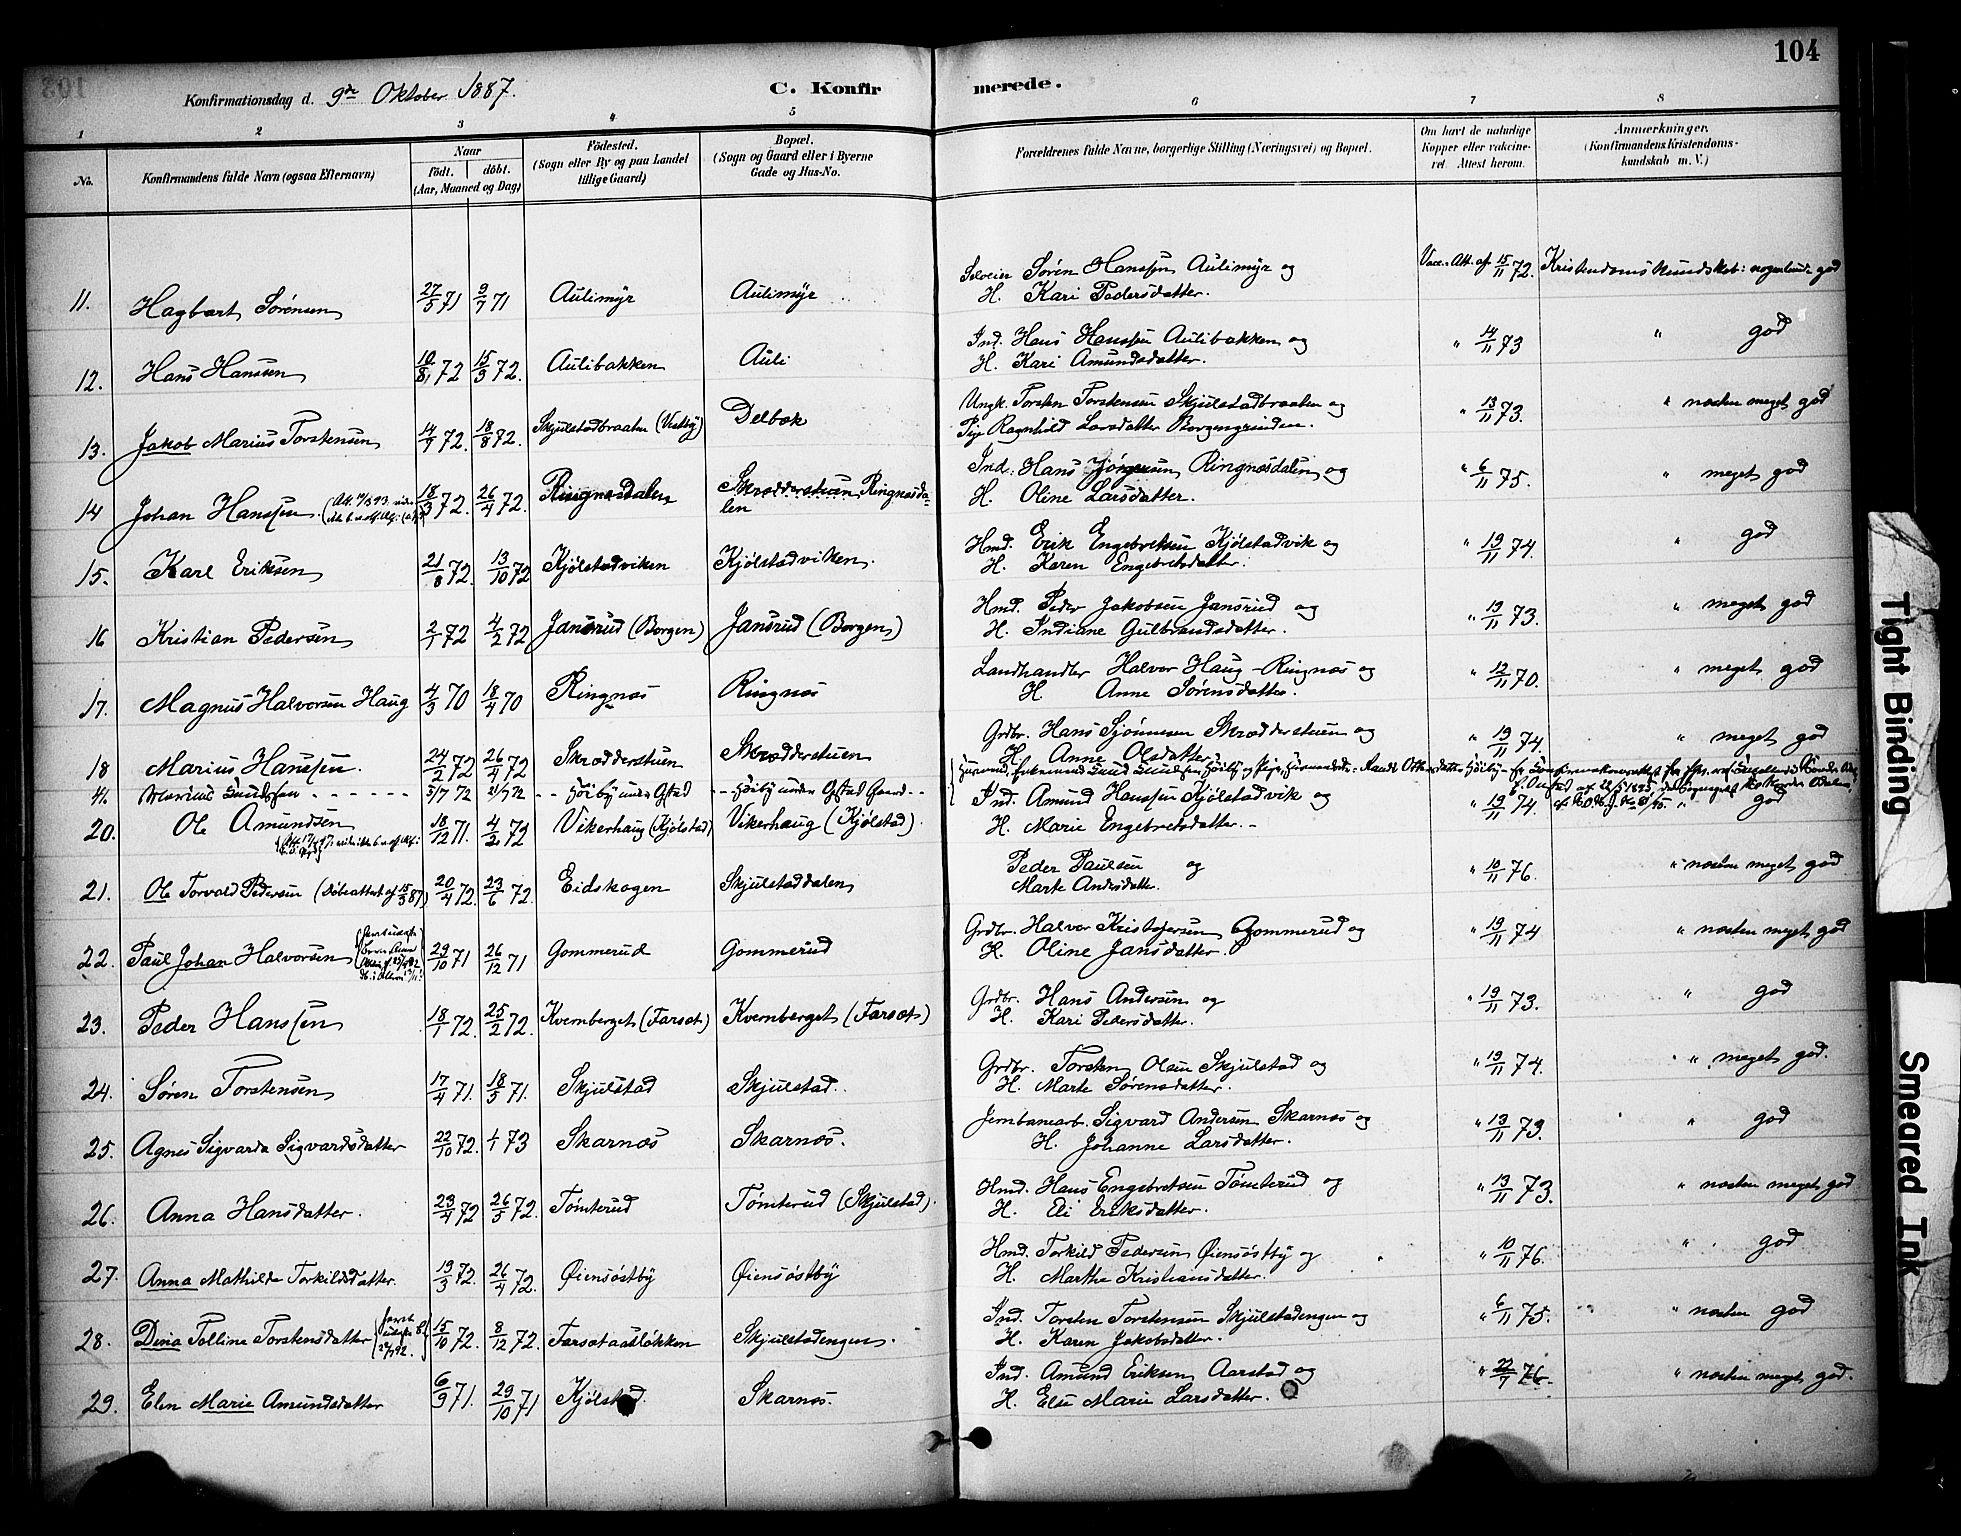 104
Konfirmationsdag d. 9de Oktober 1887.
C. Konfirmerede.
1 2 3 4 5 6 7 8
No.
Konfirmandens fulde Navn (ogsaa Efternavn)
Naar
født. døbt.
(Aar, Maaned og Dag)
Födested.
(Sogn eller By og paa Landet
tillige Gaard)
Bopæl.
(Sogn og Gaard eller i Byerne
Gade og Hus-No.
Forældrenes fulde Navne, borgerlige Stilling (Næringsvei) og Bopæl.
Om havt de naturlige
Kopper eller vakcine-
ret Attest herom.
Anmærkninger.
(Konfirmandens Kristendoms-
kundskab m. V.)
11. Hagbart Sørensen 27/5 71 9/7 71 Aulimyr Aulimyr Selveier Søren Hanssen Aulimyr og Vacc. Att. af 15/11 72. Kristendomskundskab: nogenlunde god
H. Kari Pedersdatter.
12. Hans Hanssen 10/8 72 15/9 72. Aulibakken Auli Ind. Hans Hanssen Aulibakken og " 14/11 73 " god
H. Kari Amundsdatter.
13. Jakob Marius Torstensen 14/7 72. 18/8 72. Skjulstadbraaten (Vestby) Delbæk Ungk. Torsten Torstensen Skjulstadbraaten og " 13/11 73. " næsten meget god
Pige Ragnhild Larsdatter Borgengrinden.
14 Johan Hanssen. 18/3 72. 26/4 72. Ringnæsdalen Skrædderstuen Ringnæsda-
len Ind. Hans Jörgensen Ringnæsdalen og " 6/11 75. " meget god
H. Oline Larsdatter.
15. Karl Eriksen 21/8 72. 13/10 72 Kjølstadviken Kjølstadviken. Hmd. Erik Engebretsen Kjølstadvik og " 19/11 74. " god
H. Karen Engebretsdatter.
16 Kristian Pedersen 2/1 72 4/2 72 Jansrud (Borgen) Jansrud (Borgen) Hmd. Peder Jakobsen Jansrud og " 19/11 73. " meget god
H. Indiane Gulbrandsdatter.
17. Magnus Halvorsen Haug 4/3 70 18/4 70 Ringnæs Ringnæs Landhandler Halvor Haug-Ringnæs og " 12/11 70. " meget god
H. Anne Sørensdatter.
18 Marius Hanssen. 24/2 72 26/4 72 Skrædderstuen Skrædderstuen Grdbr. Hans Sjønnesen Skrædderstuen og " 19/11 74. " meget god
H. Anne Olsdatter
Marius 5/7 72 21/7 72 Høiby under Opstad
20. Ole Amundsen 18/12 71. 4/2 72 Vikerhaug (Kjølstad) Vikerhaug (Kjølstad). Ind. Amund Hanssen Kjølstadvik og " 19/11 74. " god
H. Marie Engebretsdatter.
21. Ole Torvald Pedersen (Døbeattest af 15/3 87) 20/4 72. 23/6 72. Eidskogen Skjulstaddalen Peder Paulsen og " 10/11 76. " næsten meget god
Marte Andersdatter.
22. Paul Johan Halvorsen 29/10 71 26/12 71 Gommerud Gommerud Grdbr. Halvor Kristofersen Gommerud og " 19/11 74 " næsten meget god
H. Oline Jansdatter.
23. Peder Hanssen 18/1 72. 25/2 72. Kvernberget (Farsæt) Kvernberget (Farsæt) Grdbr. Hans Andersen og " 19/11 73. " god
H. Kari Pedersdatter.
24. Søren Torstensen 17/4 71. 18/5 71. Skjulstad Skjulstad. Grdbr. Torsten Olsen Skjulstad og " 19/11 74. " meget god.
H. Marte Sørensdatter.
25. Agnes Sigvarda Sigvardsdatter 22/10 72. 1/1 73 Skarnæs Skarnæs. Jernbanearb. Sigvard Andersen Skarnæs og " 13/11 73. " god
H. Johanne Larsdatter.
26. Anna Hansdatter. 23/4 72 26/5 72. Tømterud Tømterud (Skjulstad). Hmd. Hans Engebretsen Tømterud og " 13/11 73. " næsten meget god
H. Eli Eriksdatter.
27. Anna Mathilde Torkildsdatter. 19/3 72. 26/4 72. Øiensøstby Øiensøstby Hmd. Torkild Pedersen Øiensøstby og " 10/11 76. " god
H. Marthe Kristiansdatter.
28. Dina Polline Torstensdatter 15/10 72. 8/12 72. Farsætaasløkken Skjulstadengen. Ind. Torsten Torstensen Skjulstadengen og " 6/11 75. " næsten god
H. Karen Jakobsdatter.
29. Elen Marie Amundsdatter 6/9 71. 29/10 71 Kjølstad. Skarnæs. Ind. Amund Eriksen Aarstad og " 22/7 76. " næsten meget god.
H. Else Marie Larsdatter.
Tight Binding
Smeared Ink